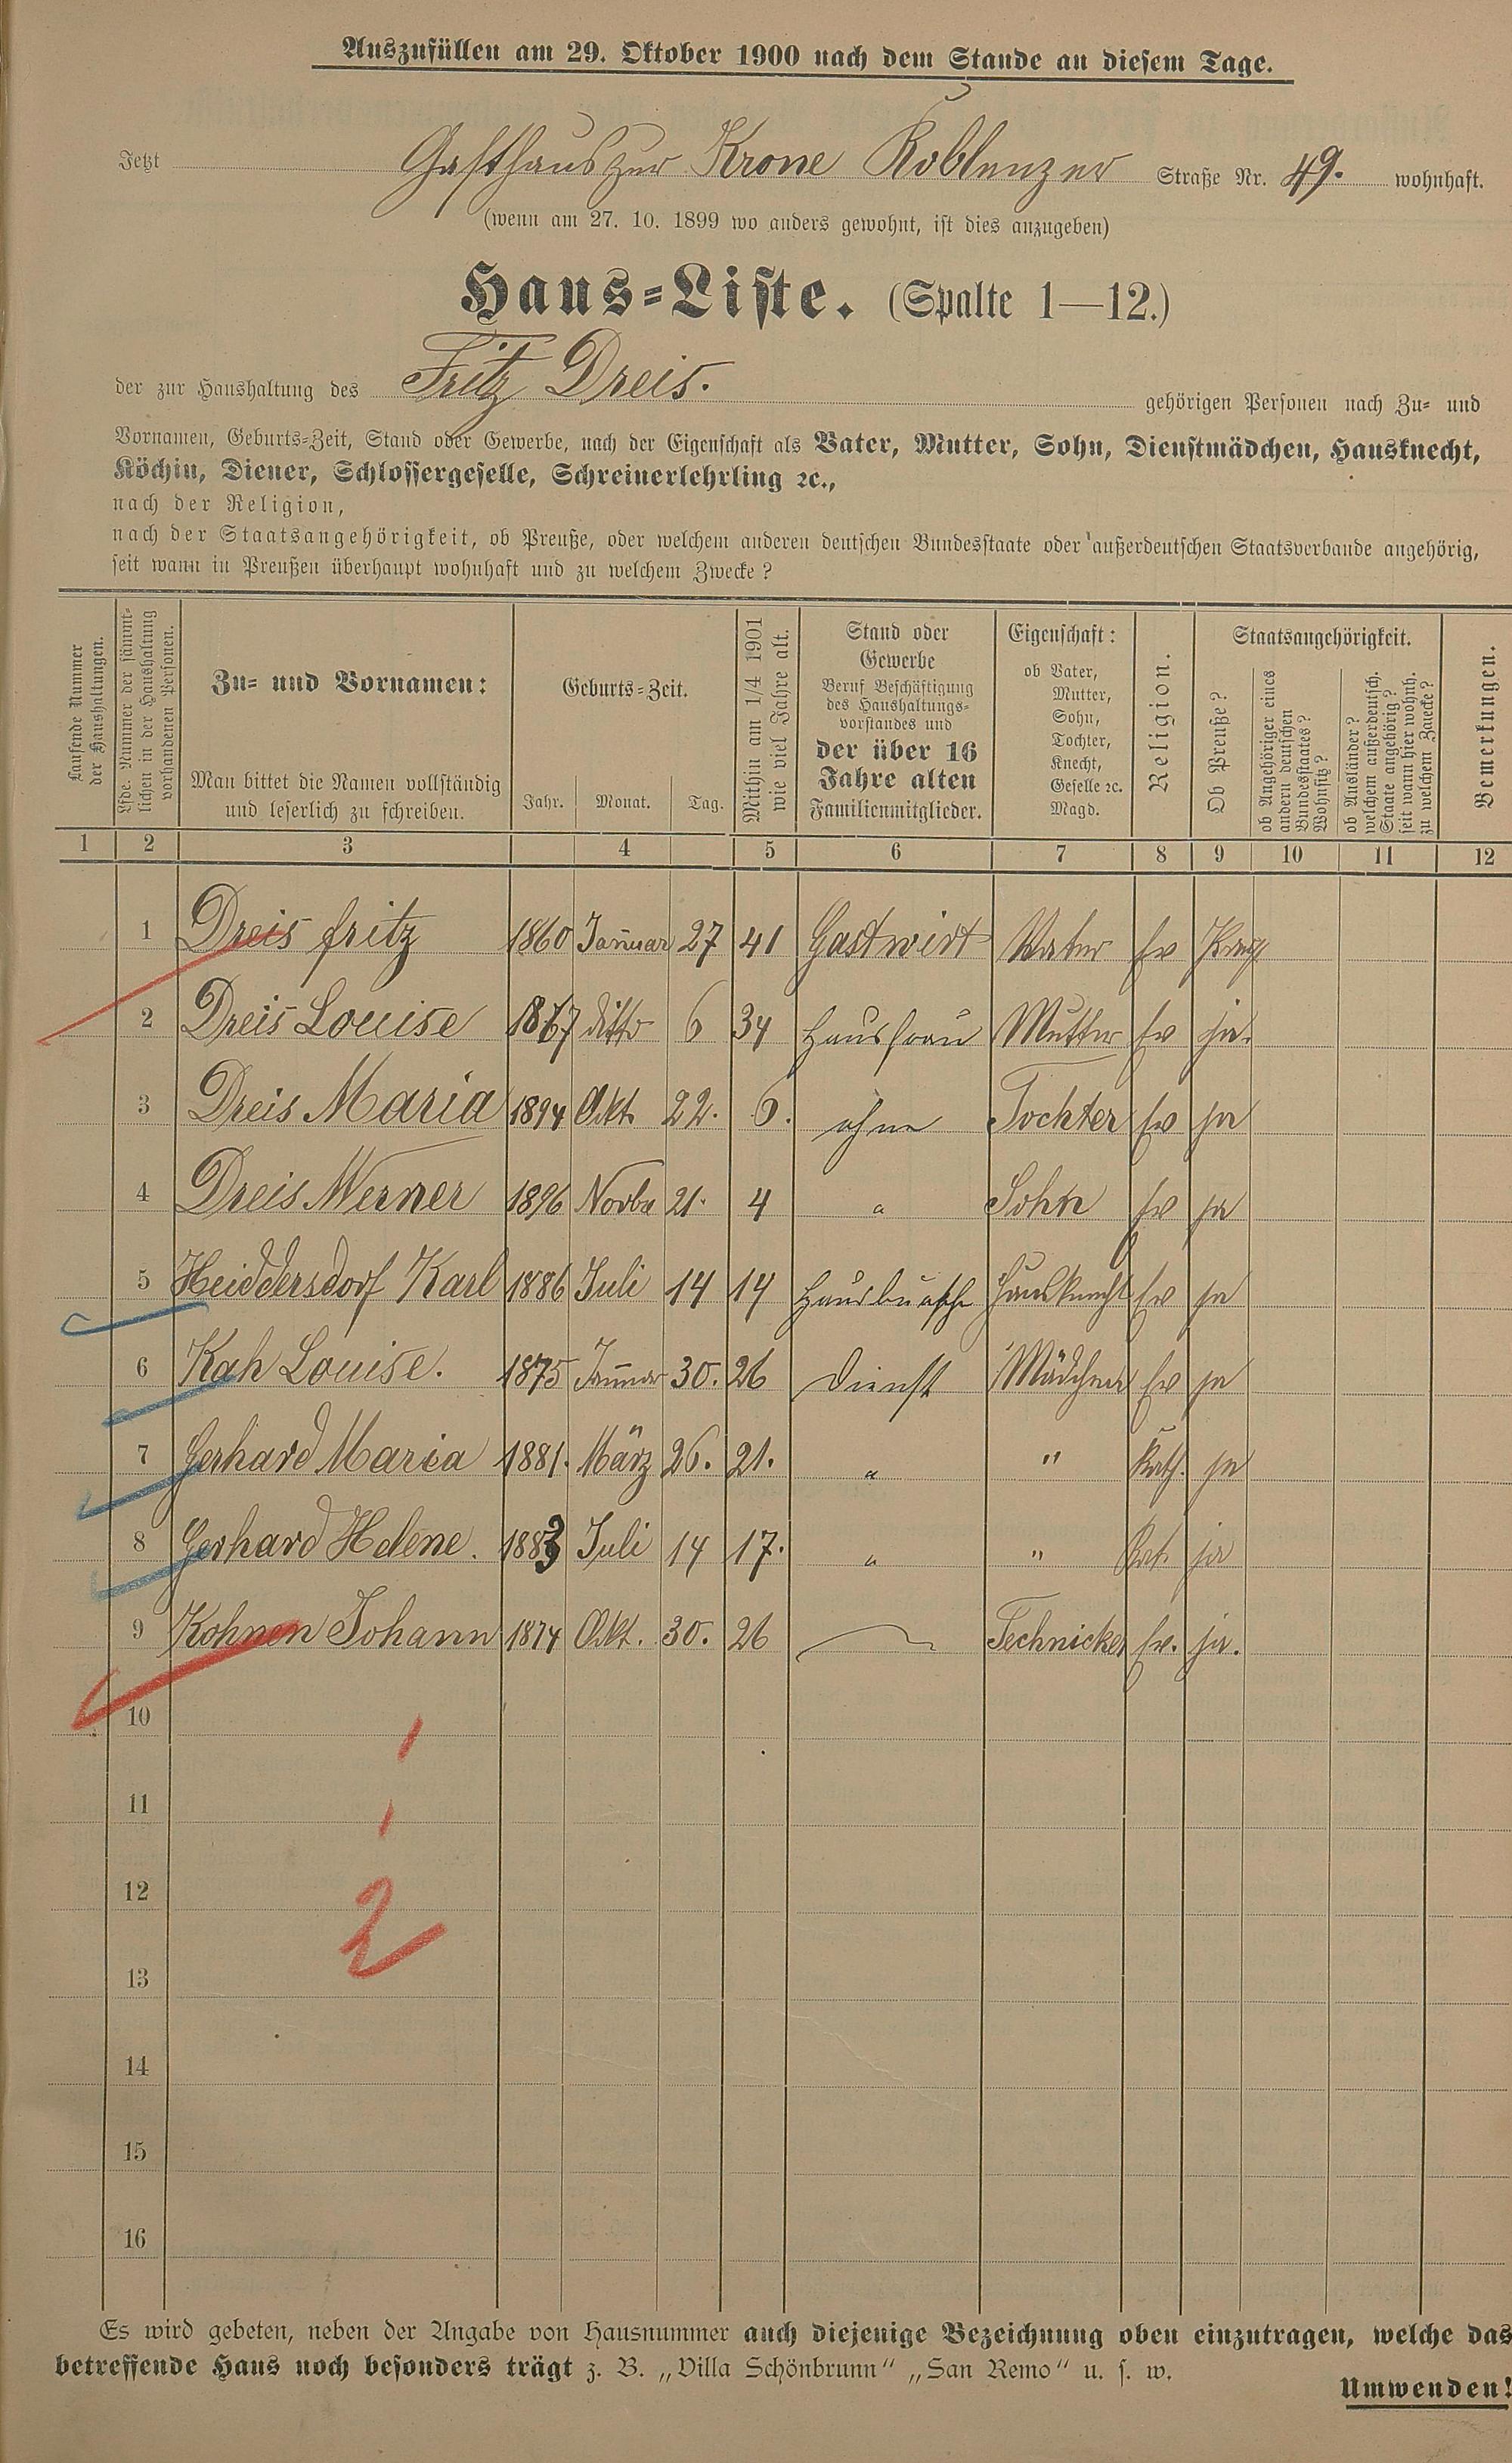 Auszufüllen am 29. Oktober 1900 nach dem Stande an diesem Tage.
Jetzt Gasthaus zur Krone Koblenzer Straße Nr. 49. wohnhaft.
(wenn am 27. 10. 1899 wo anders gewohnt, ist dies anzugeben)
Haus-Liste. (Spalte 1—12.)
der zur Haushaltung des Fritz Dreis. gehörigen Personen nach Zu- und
Vornamen, Geburts-Zeit, Stand oder Gewerbe, nach der Eigenschaft als Vater, Mutter, Sohn, Dienstmädchen, Hausknecht,
Köchin, Diener, Schlossergeselle, Schreinerlehrling ꝛc.,
nach der Religion,
nach der Staatsangehörigkeit, ob Preuße, oder welchem anderen deutschen Bundesstaate oder außerdeutschen Staatsverbande angehörig,
seit wann in Preußen überhaupt wohnhaft und zu welchem Zwecke?
Laufende Nummer
der Haushaltungen.
Lfde. Nummer der sämmt-
lichen in der Haushaltung
vorhandenen Personen.
Zu- und Vornamen:
Man bittet die Namen vollständig
und leserlich zu schreiben.
Geburts-Zeit.
Jahr. Monat. Tag.
Mithin am 1/4 1901
wie viel Jahre alt.
Stand oder
Gewerbe
Beruf Beschäftigung
des Haushaltungs-
vorstandes und
der über 16
Jahre alten
Familienmitglieder.
Eigenschaft:
ob Vater,
Mutter,
Sohn,
Tochter,
Knecht,
Geselle ꝛc.
Magd.
Religion.
Staatsangehörigkeit.
Ob Preuße?
ob Angehöriger eines
andern deutschen
Bundesstaates?
Wohnsitz?
ob Ausländer?
welchem außerdeutsch.
Staate angehörig?
seit wann hier wohnh.
zu welchem Zwecke?
Bemerkungen.
1 2 3 4 5 6 7 8 9 10 11 12
1 Dreis Fritz 1860 Januar 27 41 Gastwirt Vater Ev
2 Dreis Louise 1867 ditto 6 34 Hausfrau Mutter Ev ja.
3 Dreis Maria 1894 Okt. 22. 6. ohne Tochter Ev ja
4 Dreis Werner 1896 Novbr 21. 4 " Sohn Ev ja
5 Heiddersdorf Karl 1886 Juli 14 14 Hausbursche Hausknecht Ev ja
6 Kah Louise. 1875 Januar 30. 26 Dienst Mädchen Ev ja
7 Gerhard Maria 1881. März 26. 21. " " Kath. ja
8 Gerhard Helene. 1883 Juli 14 17. " " Kat. ja
9 Kohnen Johann 1874 Okt. 30. 26 Technicker Ev. ja.
10
11
12
2
13
14
15
16
Es wird gebeten, neben der Angabe von Hausnummer auch diejenige Bezeichnung oben einzutragen, welche das
betreffende Haus noch besonders trägt z. B. „Villa Schönbrunn“ „San Remo“ u. s. w.
Umwenden!